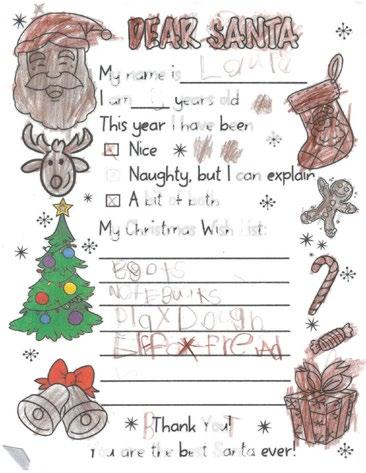 DEAR SANTA
My name is
I am years old
This year I have been
Nice
Naughty, but I can explain
A bit of both
My Christmas Wish List:
BOOtS
NOtEBOOKS
plaxDough
Thank You!
You are the best Santa ever!